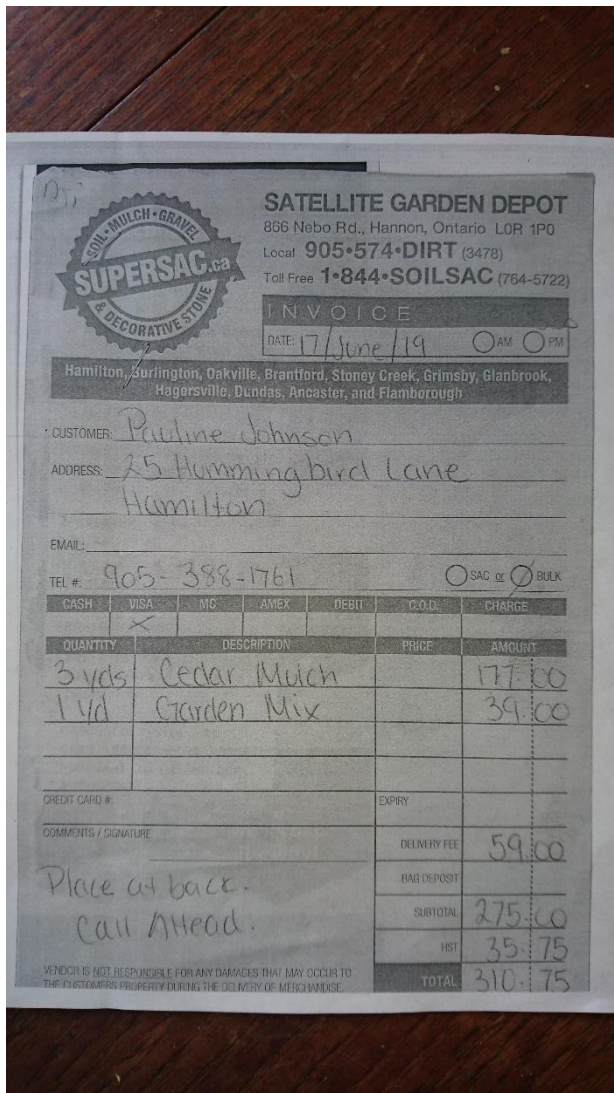 SOIL • MULCH • GRAVEL
SUPERSAC.ca
& DECORATIVE STONE
SATELLITE GARDEN DEPOT
866 Nebo Rd., Hannon, Ontario L0R 1P0
Local 905•574•DIRT (3478)
Toll Free 1•844•SOILSAC (764-5722)
INVOICE
DATE: 17/June/19 AM PM
Hamilton, Burlington, Oakville, Brantford, Stoney Creek, Grimsby, Glanbrook,
Hagersville, Dundas, Ancaster, and Flamborough
CUSTOMER: Pauline Johnson
ADDRESS: 25 Hummingbird Lane
Hamilton
EMAIL:
TEL #: 905-388-1761 SAC or BULK
CASH VISA MC AMEX DEBIT C.O.D. CHARGE
X
QUANTITY DESCRIPTION PRICE AMOUNT
3 yds Cedar Mulch 177.00
1 yd Garden Mix 39.00
CREDIT CARD #: EXPIRY
COMMENTS / SIGNATURE
DELIVERY FEE 59.00
Place at back.
BAG DEPOSIT
Call AHead.
SUBTOTAL 275.00
HST 35.75
VENDOR IS NOT RESPONSIBLE FOR ANY DAMAGES THAT MAY OCCUR TO
THE CUSTOMERS PROPERTY DURING THE DELIVERY OF MERCHANDISE.
TOTAL 310.75